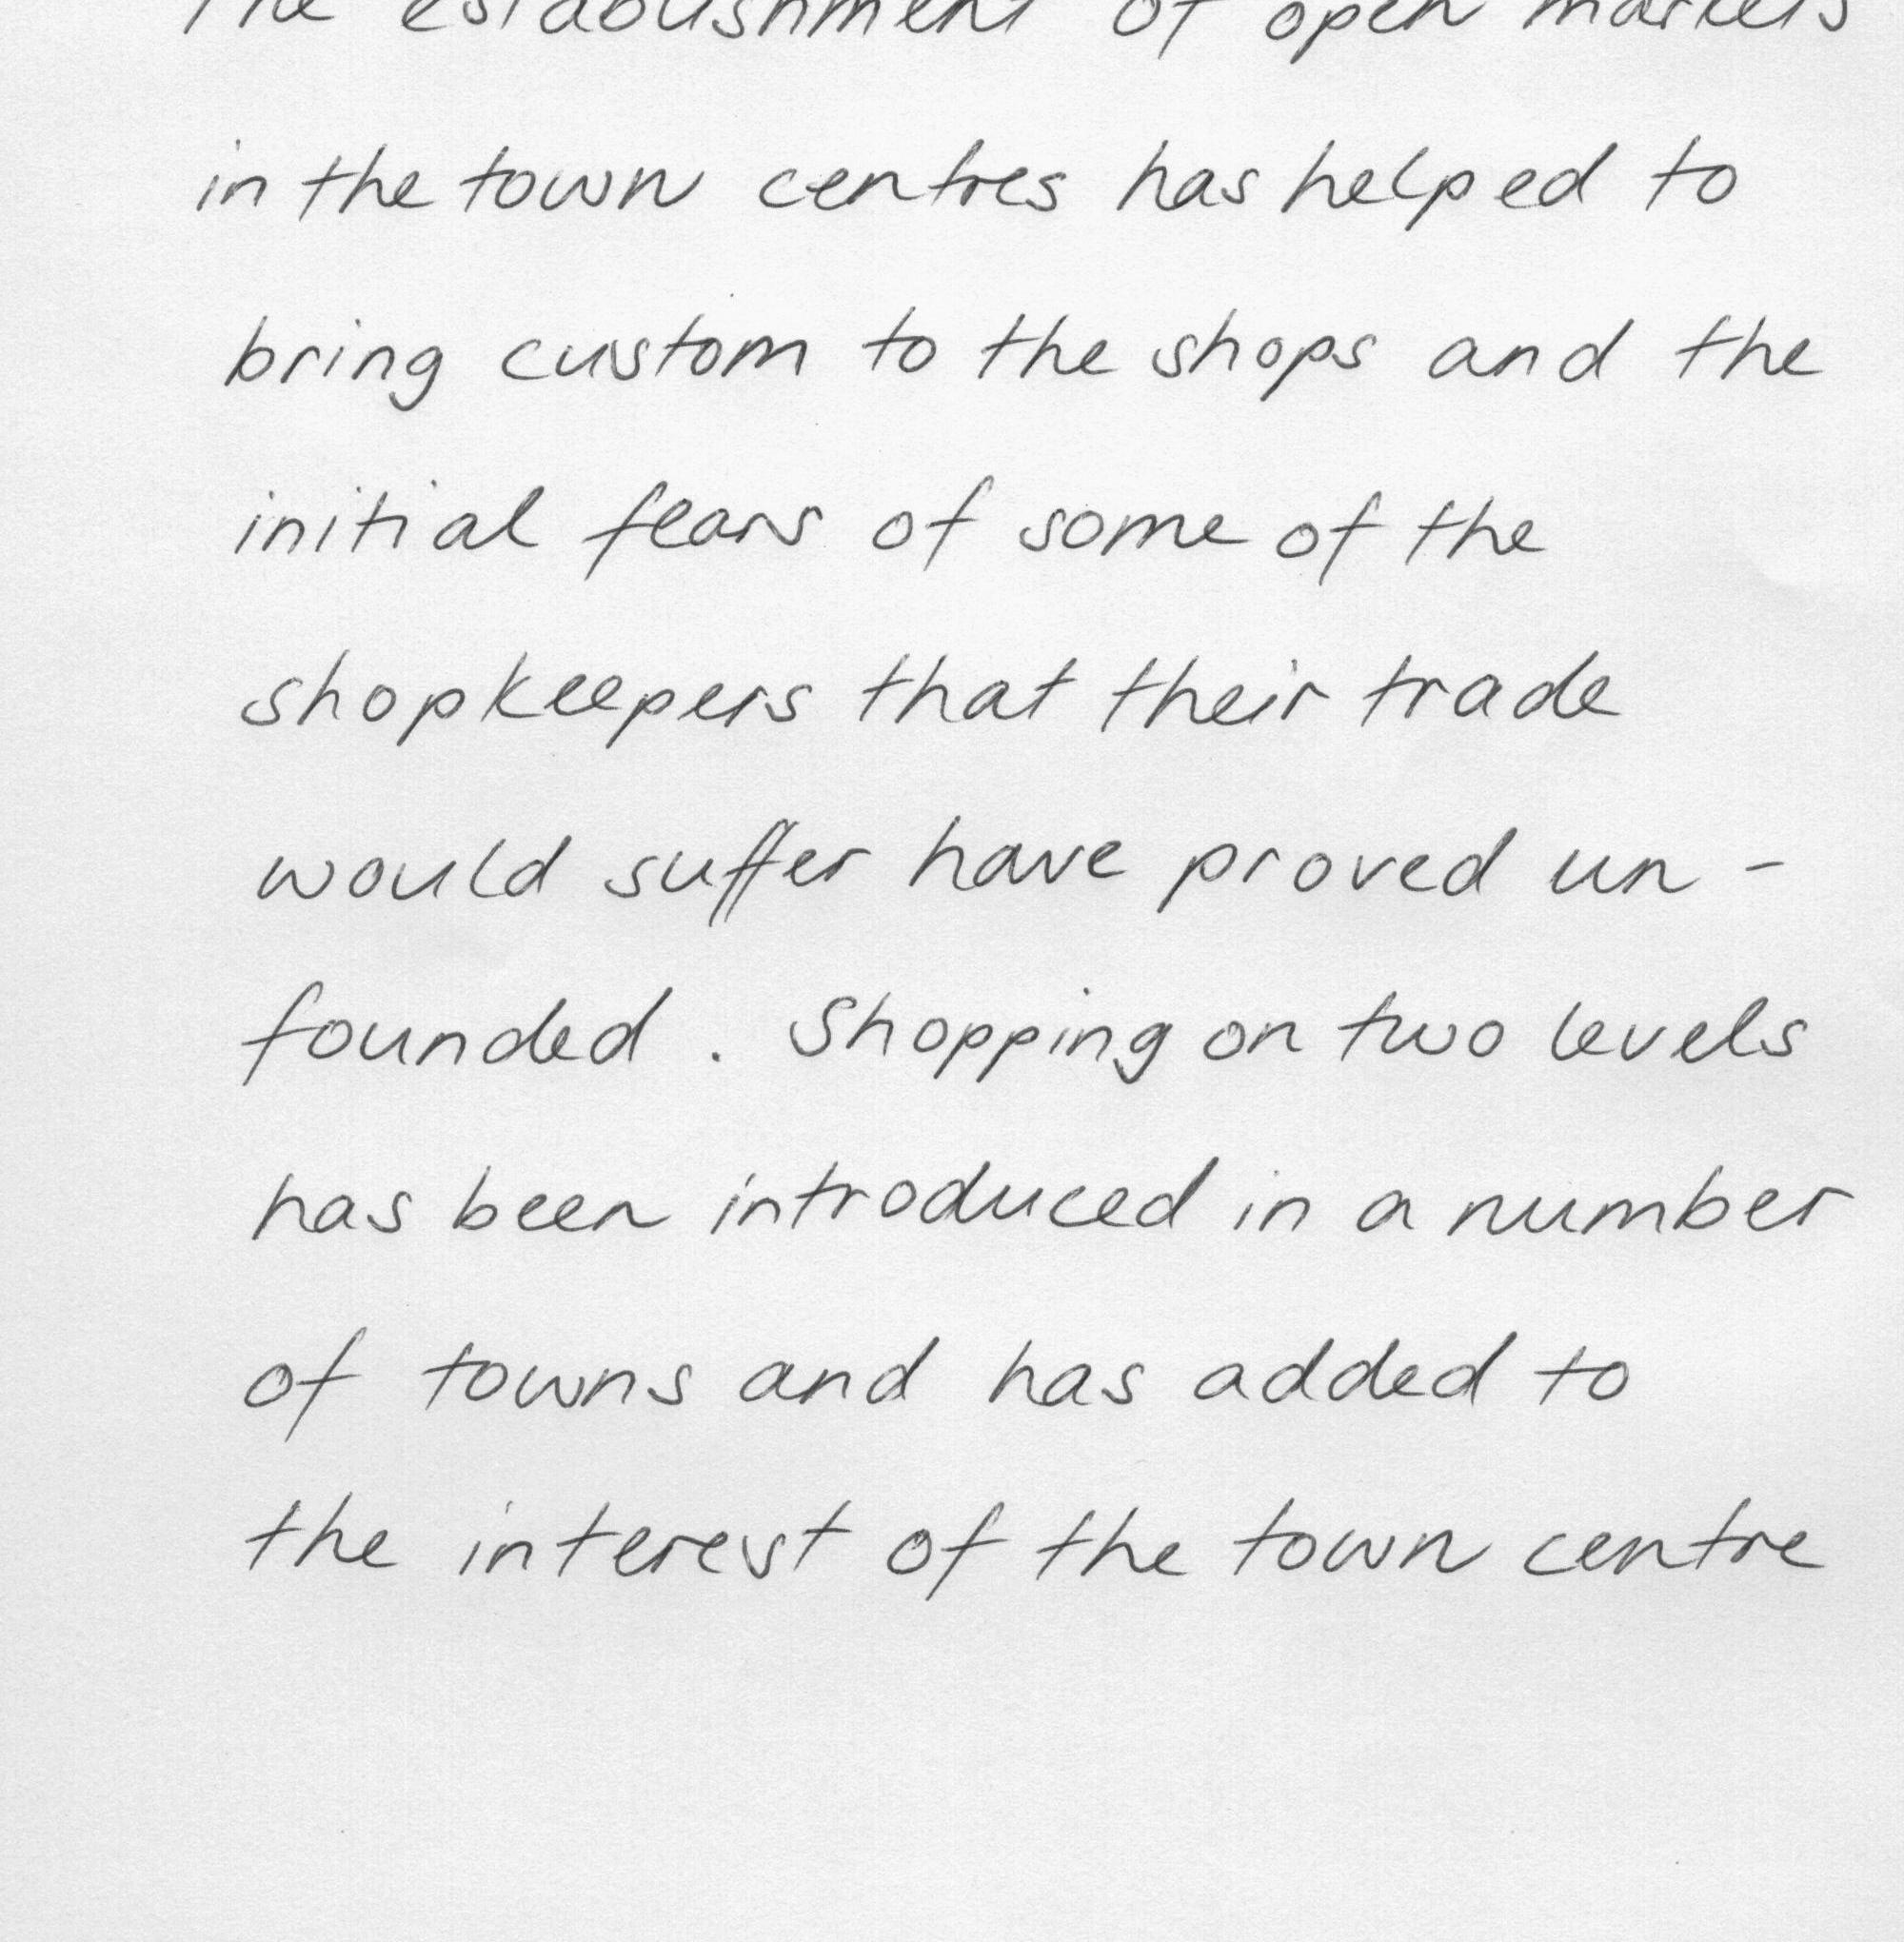 The establishment of open markets
in the town centres has helped to
bring custom to the shops and the
initial fears of some of the
shopkeepers that their trade
would suffer have proved un-
founded. Shopping on two levels
has been introduced in a number
of towns and has added to
the interest of the town centre